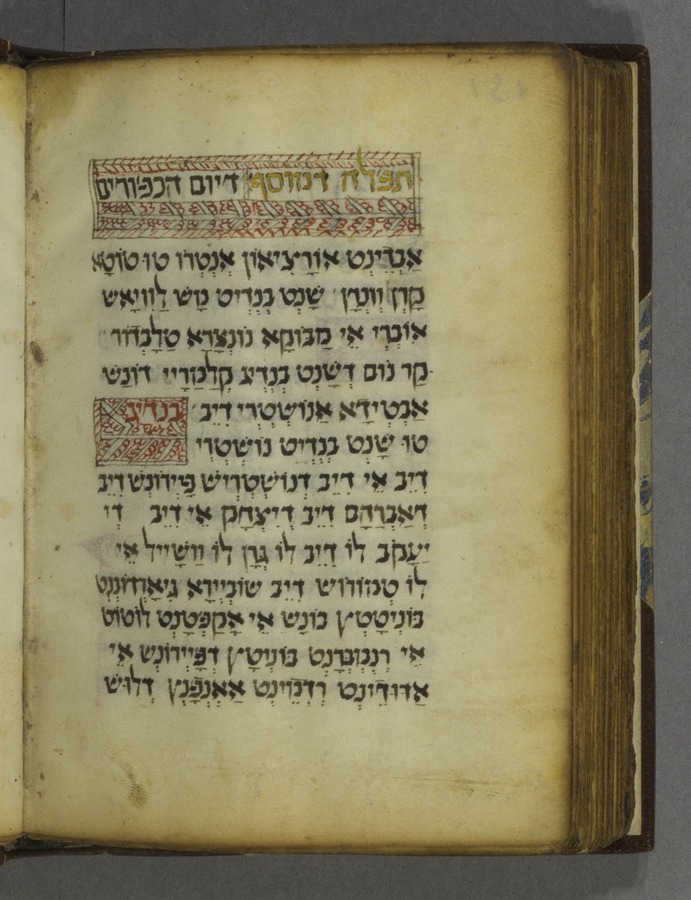 תפלה דמוסף דיום הכפורים
אברינט אורציאון אנטרו טו טוטא
קרן וונרן שנט בנדיט נש לוויאש
אוברי אי מבוקא נונצרא טלבדור
קר נום דשנט בנדיג קלמריי דונש
אבטידא אנושטרי דיב בנדיג
טו שנט בנדיט נושטרי
דיב אי דיב דנושטריש פיירונש דיב
דאברהם דיב דיצחק אי דיב די
יעקב לו דיב לו גרן לו וושייל אי
לו טמורוש דיב שוביירא גיאהזוננט
בוניטטץ בונש אי אקפטנט לוטוט
אי רנמברנט בוניטץ דפיירונש אי
אדודינט רדמוינט אאנפנץ דלוש